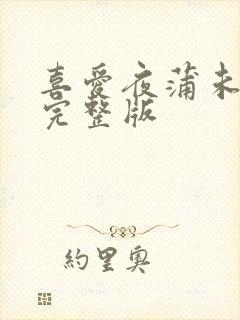 喜愛夜蒲未
完整版
約里奧